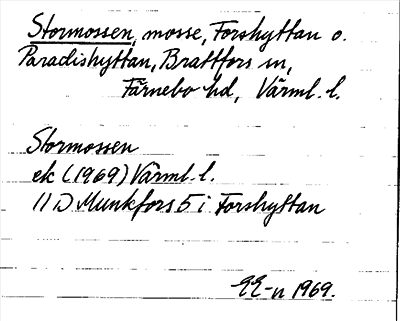 Stormossen, mosse, Forshyttan o.
Paradishyttan, Brattfors sn,
Färnebo hd, Värml. l.
Stormossen
ek (1969) Värml. l.
11 D Munkfors 5 i Forshyttan
1969.